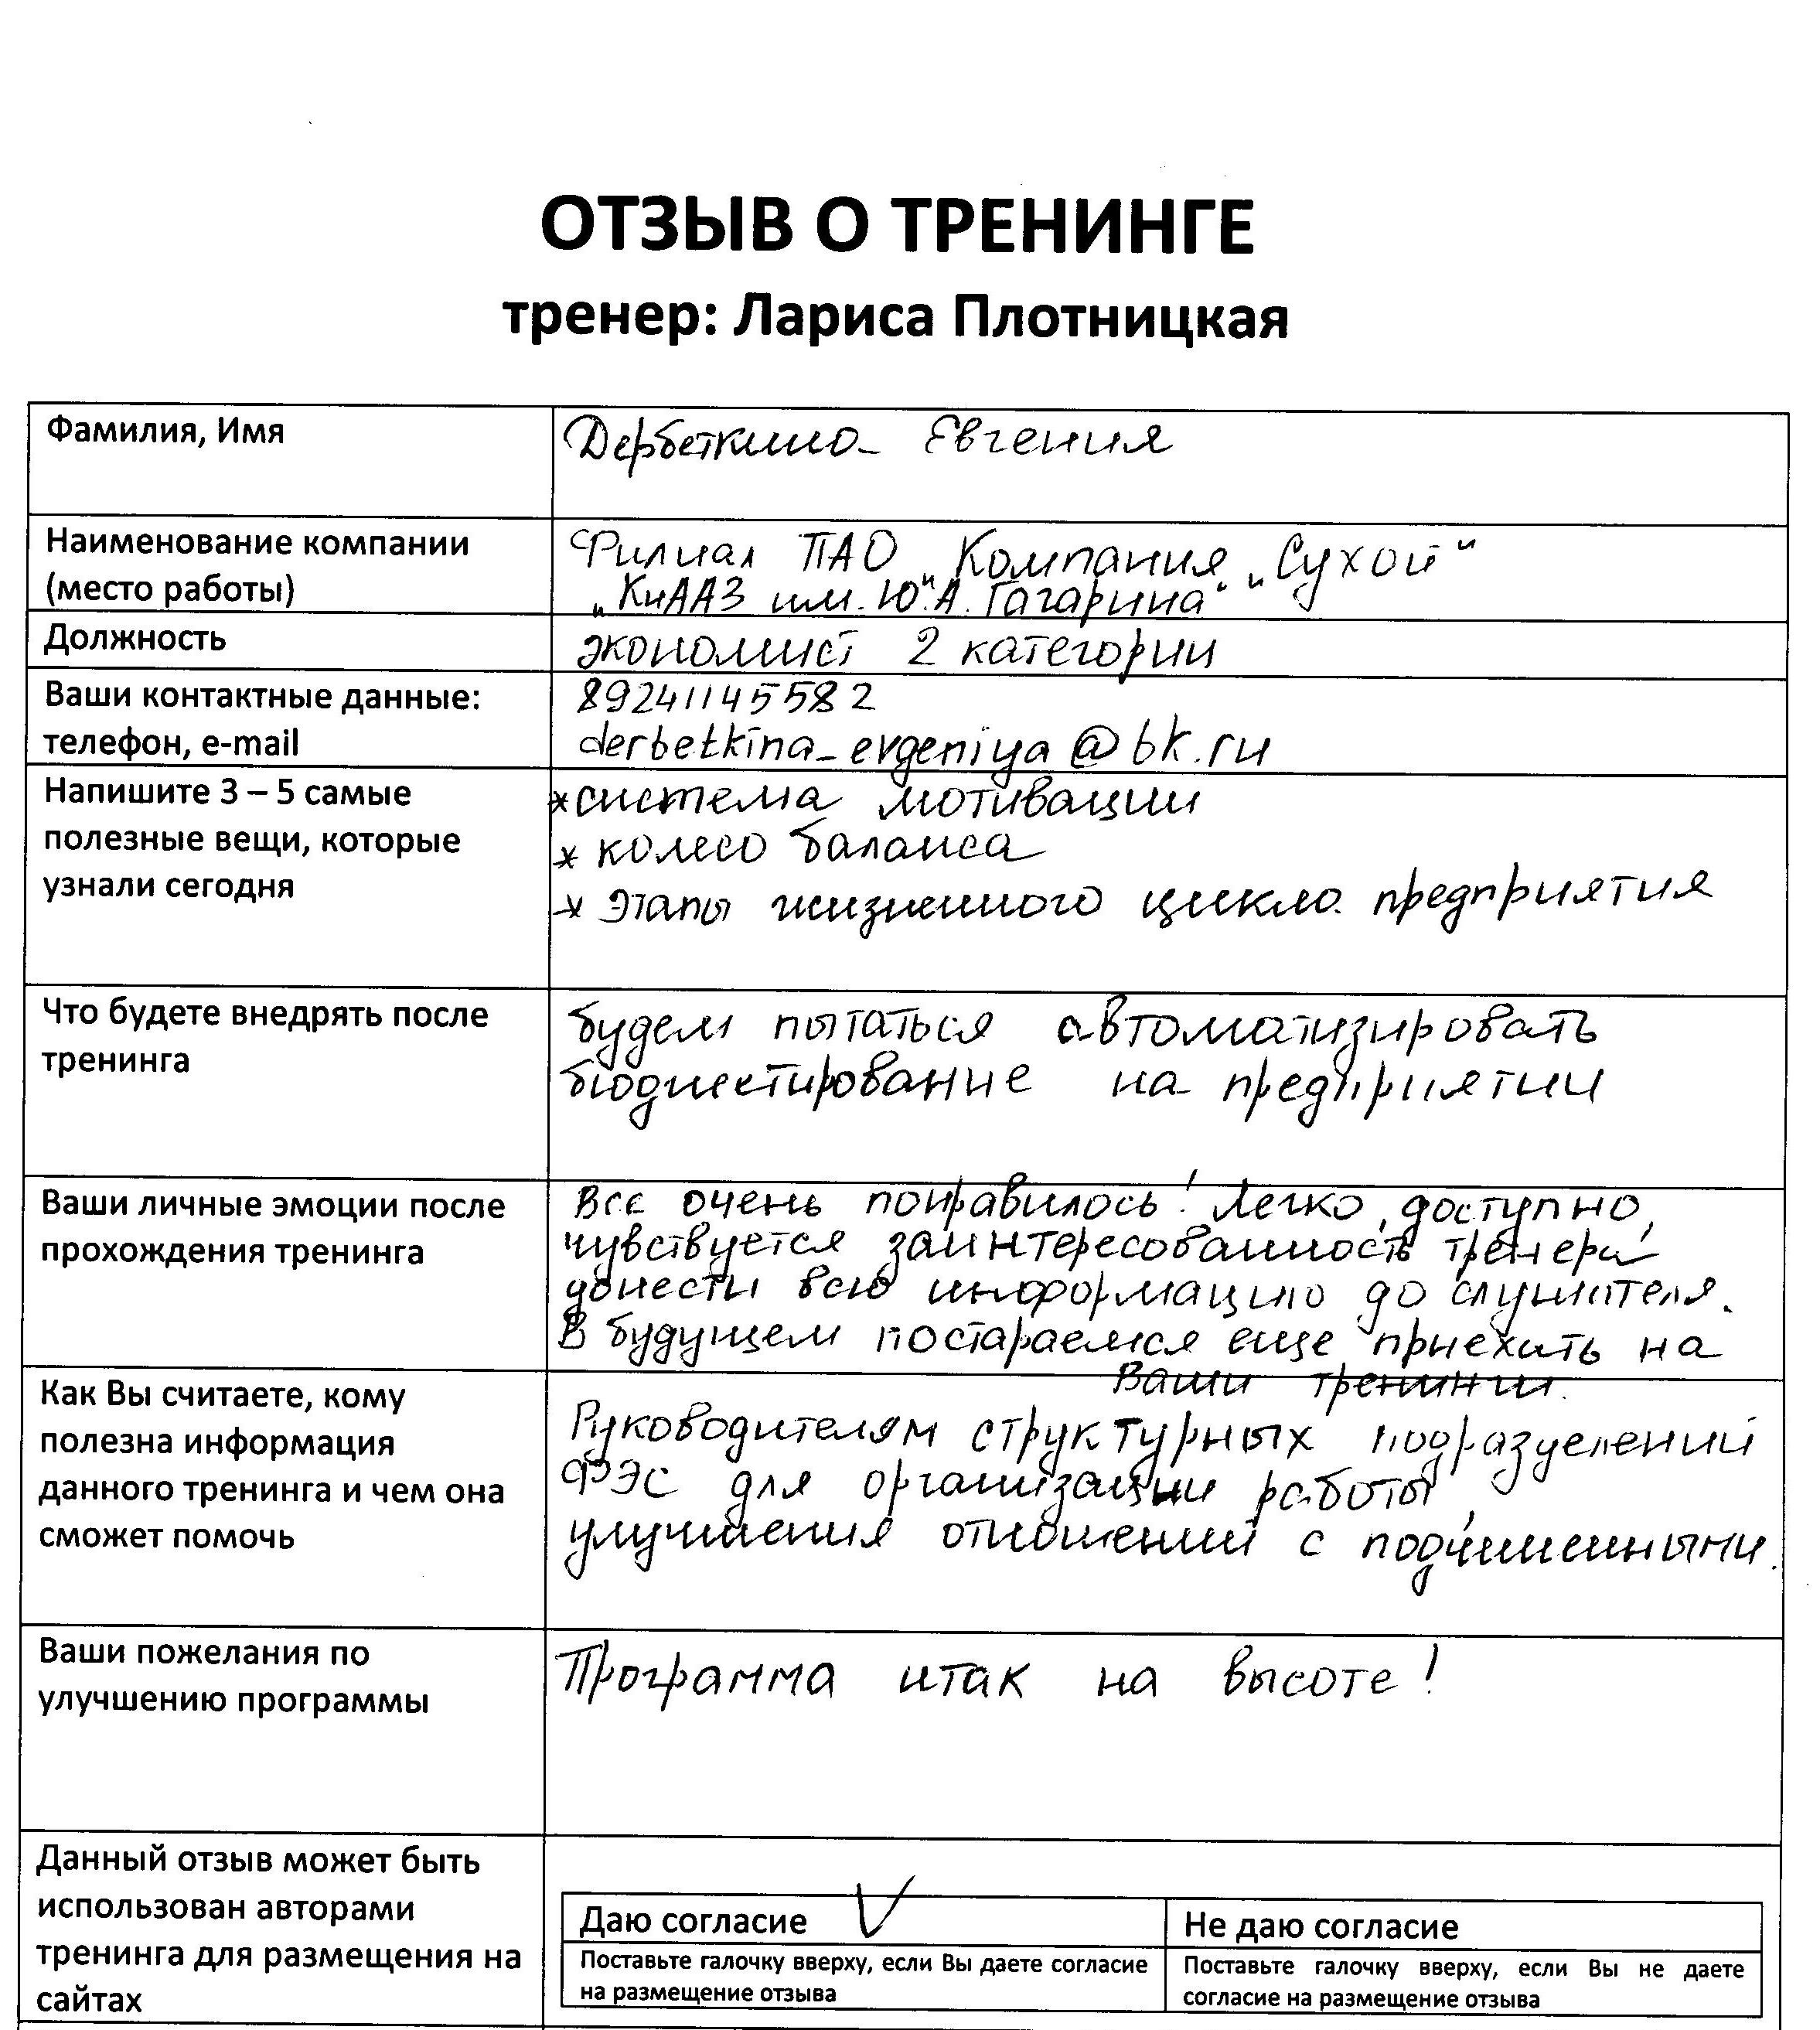 ОТЗЫВ О ТРЕНИНГЕ
тренер: Лариса Плотницкая
Фамилия, Имя
Дербеткина Евгения
Наименование компании
(место работы)
Филиал ПАО „Компания „Сухой"
„КнААЗ им. Ю.А. Гагарина"
Должность
экономист 2 категории
Ваши контактные данные:
телефон, e-mail
89241145582
derbetkina_evgeniya@bk.ru
Напишите 3 – 5 самые
полезные вещи, которые
узнали сегодня
*система мотивации
* колесо баланса
* этапы жизненного цикла предприятия
Что будете внедрять после
тренинга
будем пытаться автоматизировать
бюджетирование на предприятии
Ваши личные эмоции после
прохождения тренинга
Все очень понравилось! Легко, доступно,
чувствуется заинтересованность тренера
донести всю информацию до слушателя.
В будущем постараемся еще приехать на
Ваши тренинги.
Как Вы считаете, кому
полезна информация
данного тренинга и чем она
сможет помочь
Руководителям структурных подразделений
ФЭС для организации работы,
улучшения отношений с подчиненными.
Ваши пожелания по
улучшению программы
Программа итак на высоте!
Данный отзыв может быть
использован авторами
тренинга для размещения на
сайтах
Даю согласие V
Поставьте галочку вверху, если Вы даете согласие
на размещение отзыва
Не даю согласие
Поставьте галочку вверху, если Вы не даете
согласие на размещение отзыва